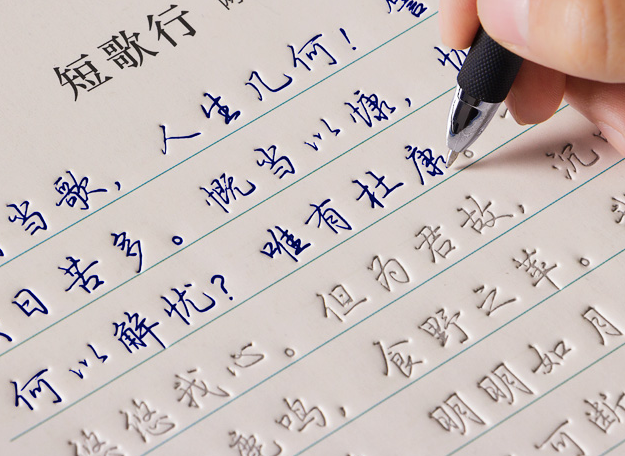 短歌行
当歌，人生几何！
日苦多。慨当以慷，
何以解忧？唯有杜康。
悠悠我心。但为君故，沉
鹿鸣，食野之苹。
明明如月
可断